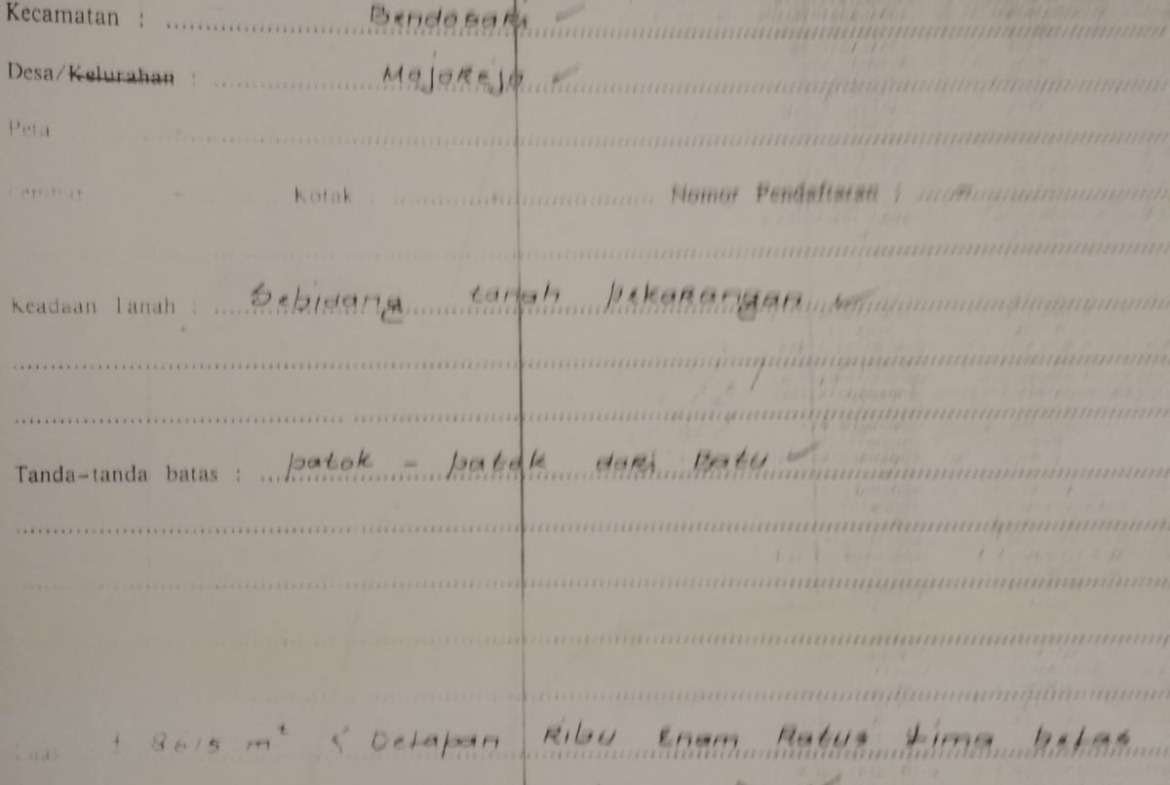 Kecamatan : Bendosari
Desa/Kelurahan : Mojorejo
Peta
Lembar - Kotak Nomor Pendaftaran : -
Keadaan Tanah : Sebidang tanah pekarangan
Tanda-tanda batas : patok - patok dari Batu
Luas ± 8615 m² ( Delapan Ribu Enam Ratus Lima belas